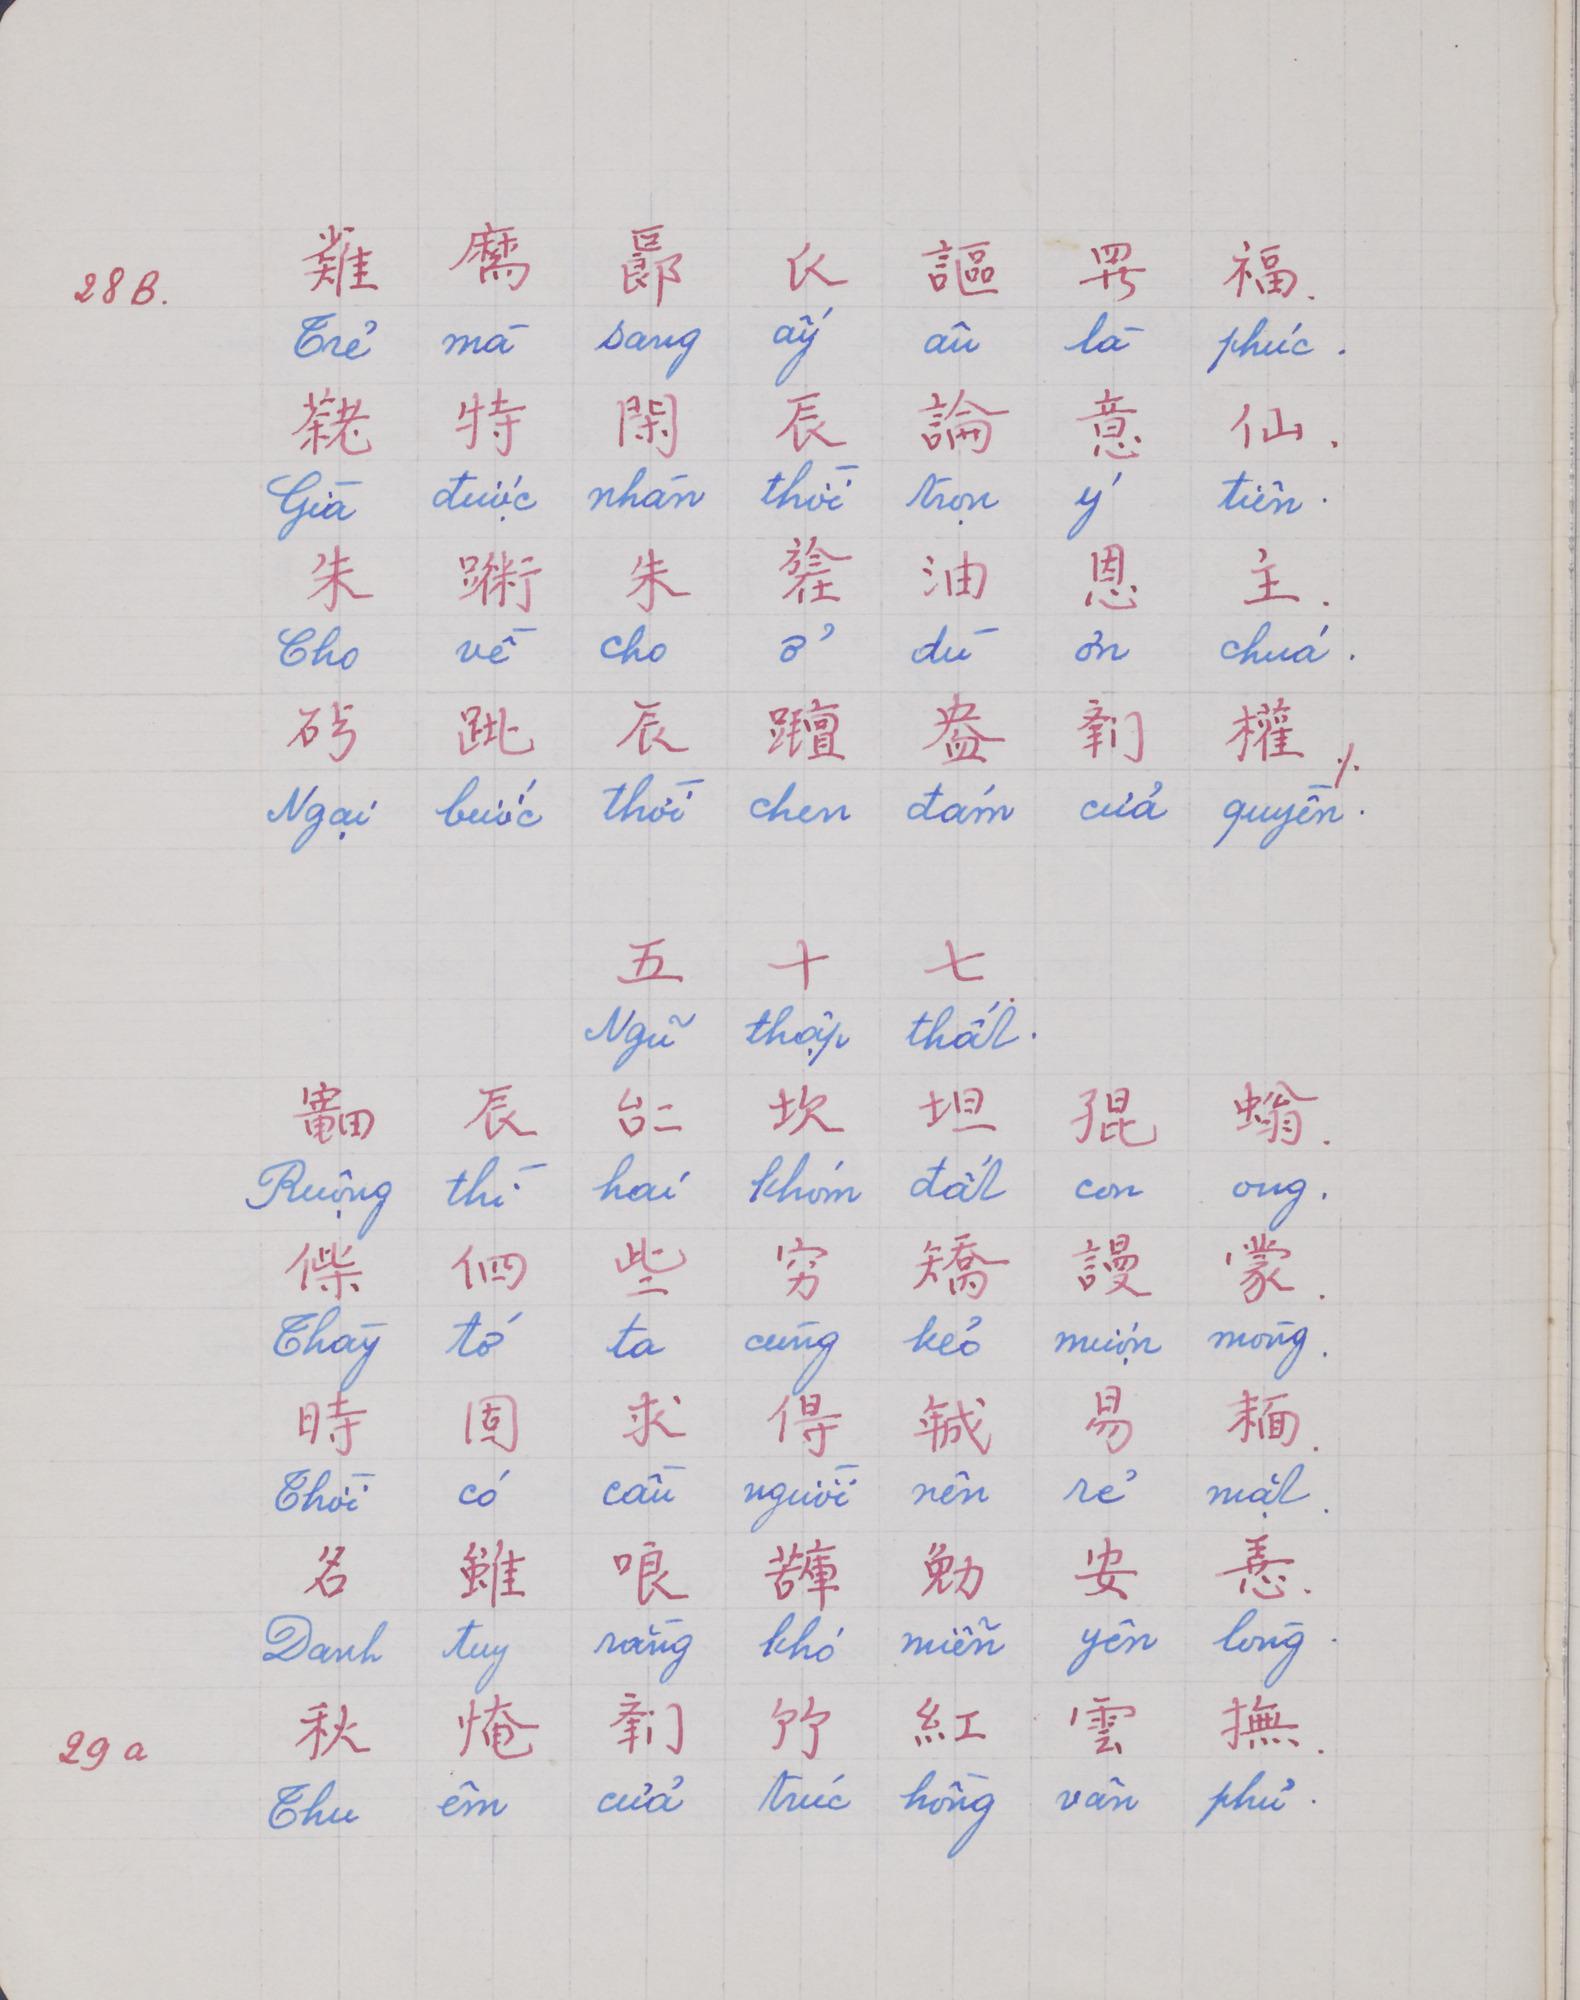 28B.
麻 郎 氏 謳 罢 福.
Trẻ mà sang ấy âu là phúc.
特 閑 辰 論 意 仙.
Già được nhàn thời trọn ý tiên.
朱 朱 油 恩 主.
Cho về cho ở dù ơn chúa.
辰 權
Ngại bước thời chen đám cửa quyền.
五 十 七.
Ngũ thập thất.
辰 𠄩 坎 坦 混 螉.
Ruộng thì hai khóm đất con ong.
傑 伵 些 穷 矯 謾 嚎.
Thầy tớ ta cùng kẻo mượn mòng.
時 固 求 得 易 𩈘.
Thời có cầu người nên rẻ mặt.
名 雖 哴 勉 安 𢚸.
Danh tuy rằng khó miễn yên lòng.
29a
秋 㤿 竹 紅 雲 撫.
Thu êm cửa trúc hồng vân phủ.